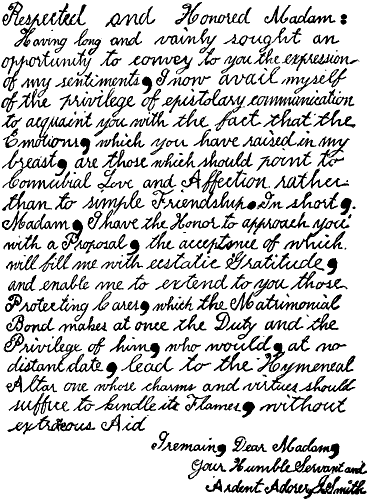 Respected and Honored Madam:
Having long and vainly sought an
opportunity to convey to you the expression
of my sentiments, I now avail myself
of the privilege of epistolary communication
to acquaint you with the fact that the
Emotions, which you have raised in my
breast, are those which should point to
Connubial Love and Affection rather
than to simple Friendship. In short,
Madam, I have the Honor to approach you
with a Proposal, the acceptance of which
will fill me with ecstatic Gratitude,
and enable me to extend to you those
Protecting Cares, which the Matrimonial
Bond makes at once the Duty and the
Privilege of him, who would, at no
distant date, lead to the Hymeneal
Altar one whose charms and virtues should
suffice to kindle its Flames, without
extraneous Aid
I remain, Dear Madam,
Your Humble Servant and
Ardent Adorer, J. Smith